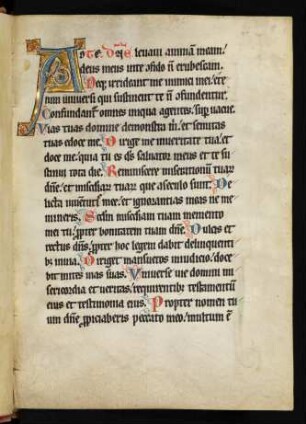 Ad te dñe levavi animam meam/
deus meus in te confido nõ erubescam.
Neqz irrideant me inimici mei/ ete
nim universi qui sustinent te nõ cfundentur.
Confundant omnes iniqua agentes/ supvacue.
Vias tuas domine demonstra m/ et semitas
tuas edoce me. Dirige me in veritate tua/ et
doce me/ quia tu es ds salvator meus et te su
stinui tota die. Reminiscere miserationũ tuar
dñe/ et misediar tuar que a seculo sunt. De
licta iuventut mee/ et ignorantias meas ne me
mineris. Scdm misediam tuam memento
mei tu/ ppter bonitatem tuam dñe. Dulcis et
rectus dñs/ ppter hoc legem dabit delinquenti
bz in via. Diriget mansuetos in iudicio/ doce
bit mites vias suas. Universe vie domini mi
sericordia et veritas/ requirentibz testamentũ
eius et testimonia eius. Propter nomen tu
um dñe ppiciaberis peccato meo/ multum ẽ